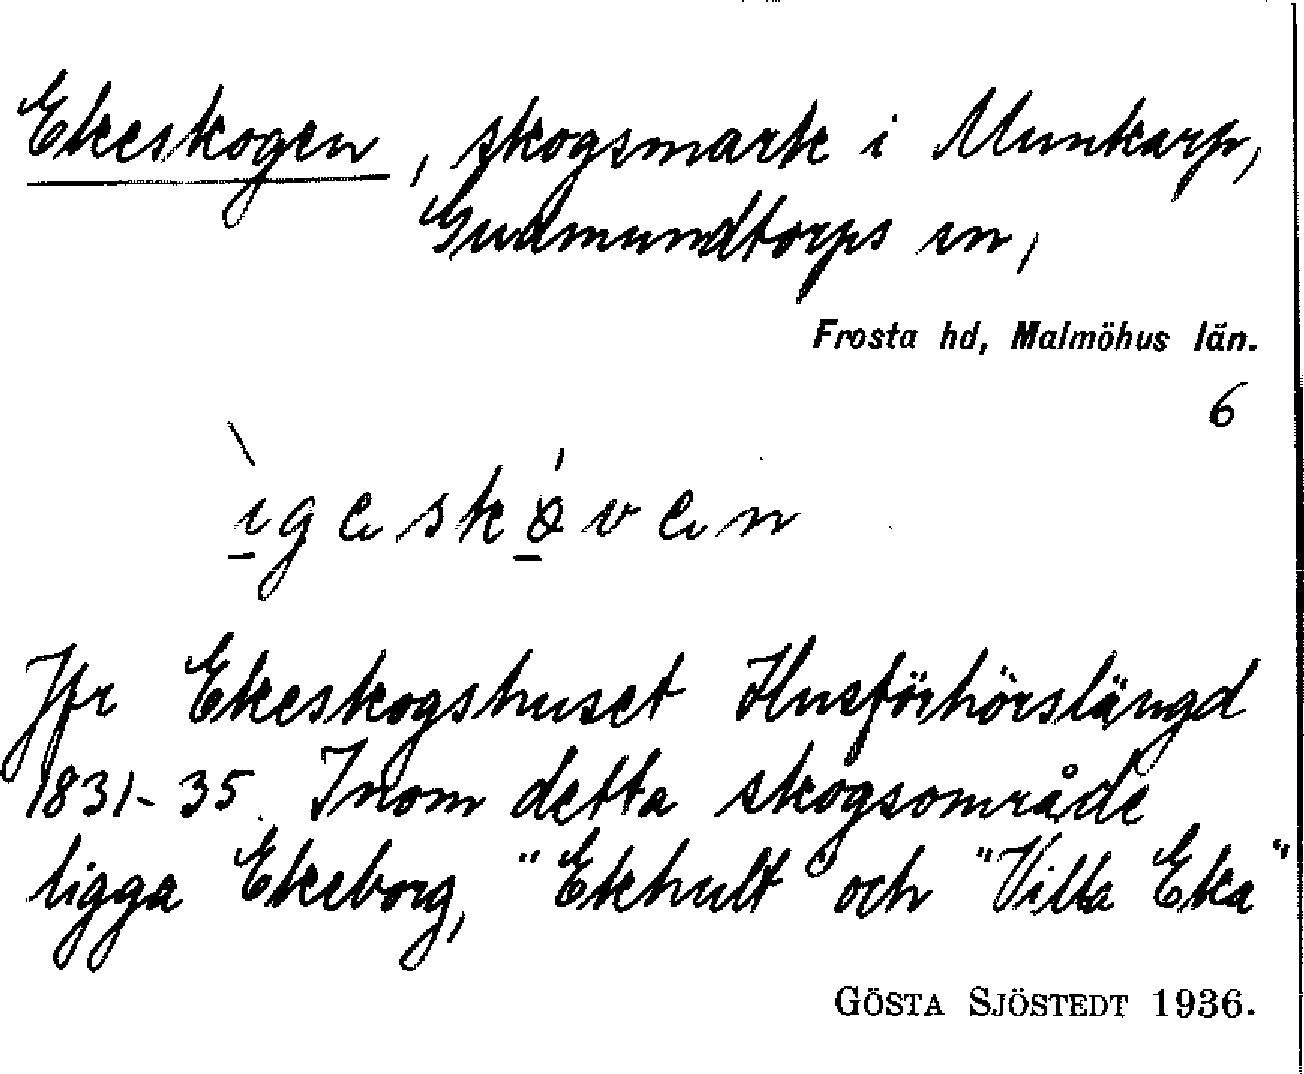 Ekeskogen, skogsmark i Munkarp,
Gudmundtorps sn,
Frosta hd, Malmöhus län.
6
ìgeskóven
Jfr Ekeskogshuset Husförhörslängd
1831-35. Inom detta skogsområde
ligga Ekeborg, "Ekhult" och "Villa Eka"
GÖSTA SJÖSTEDT 1936.